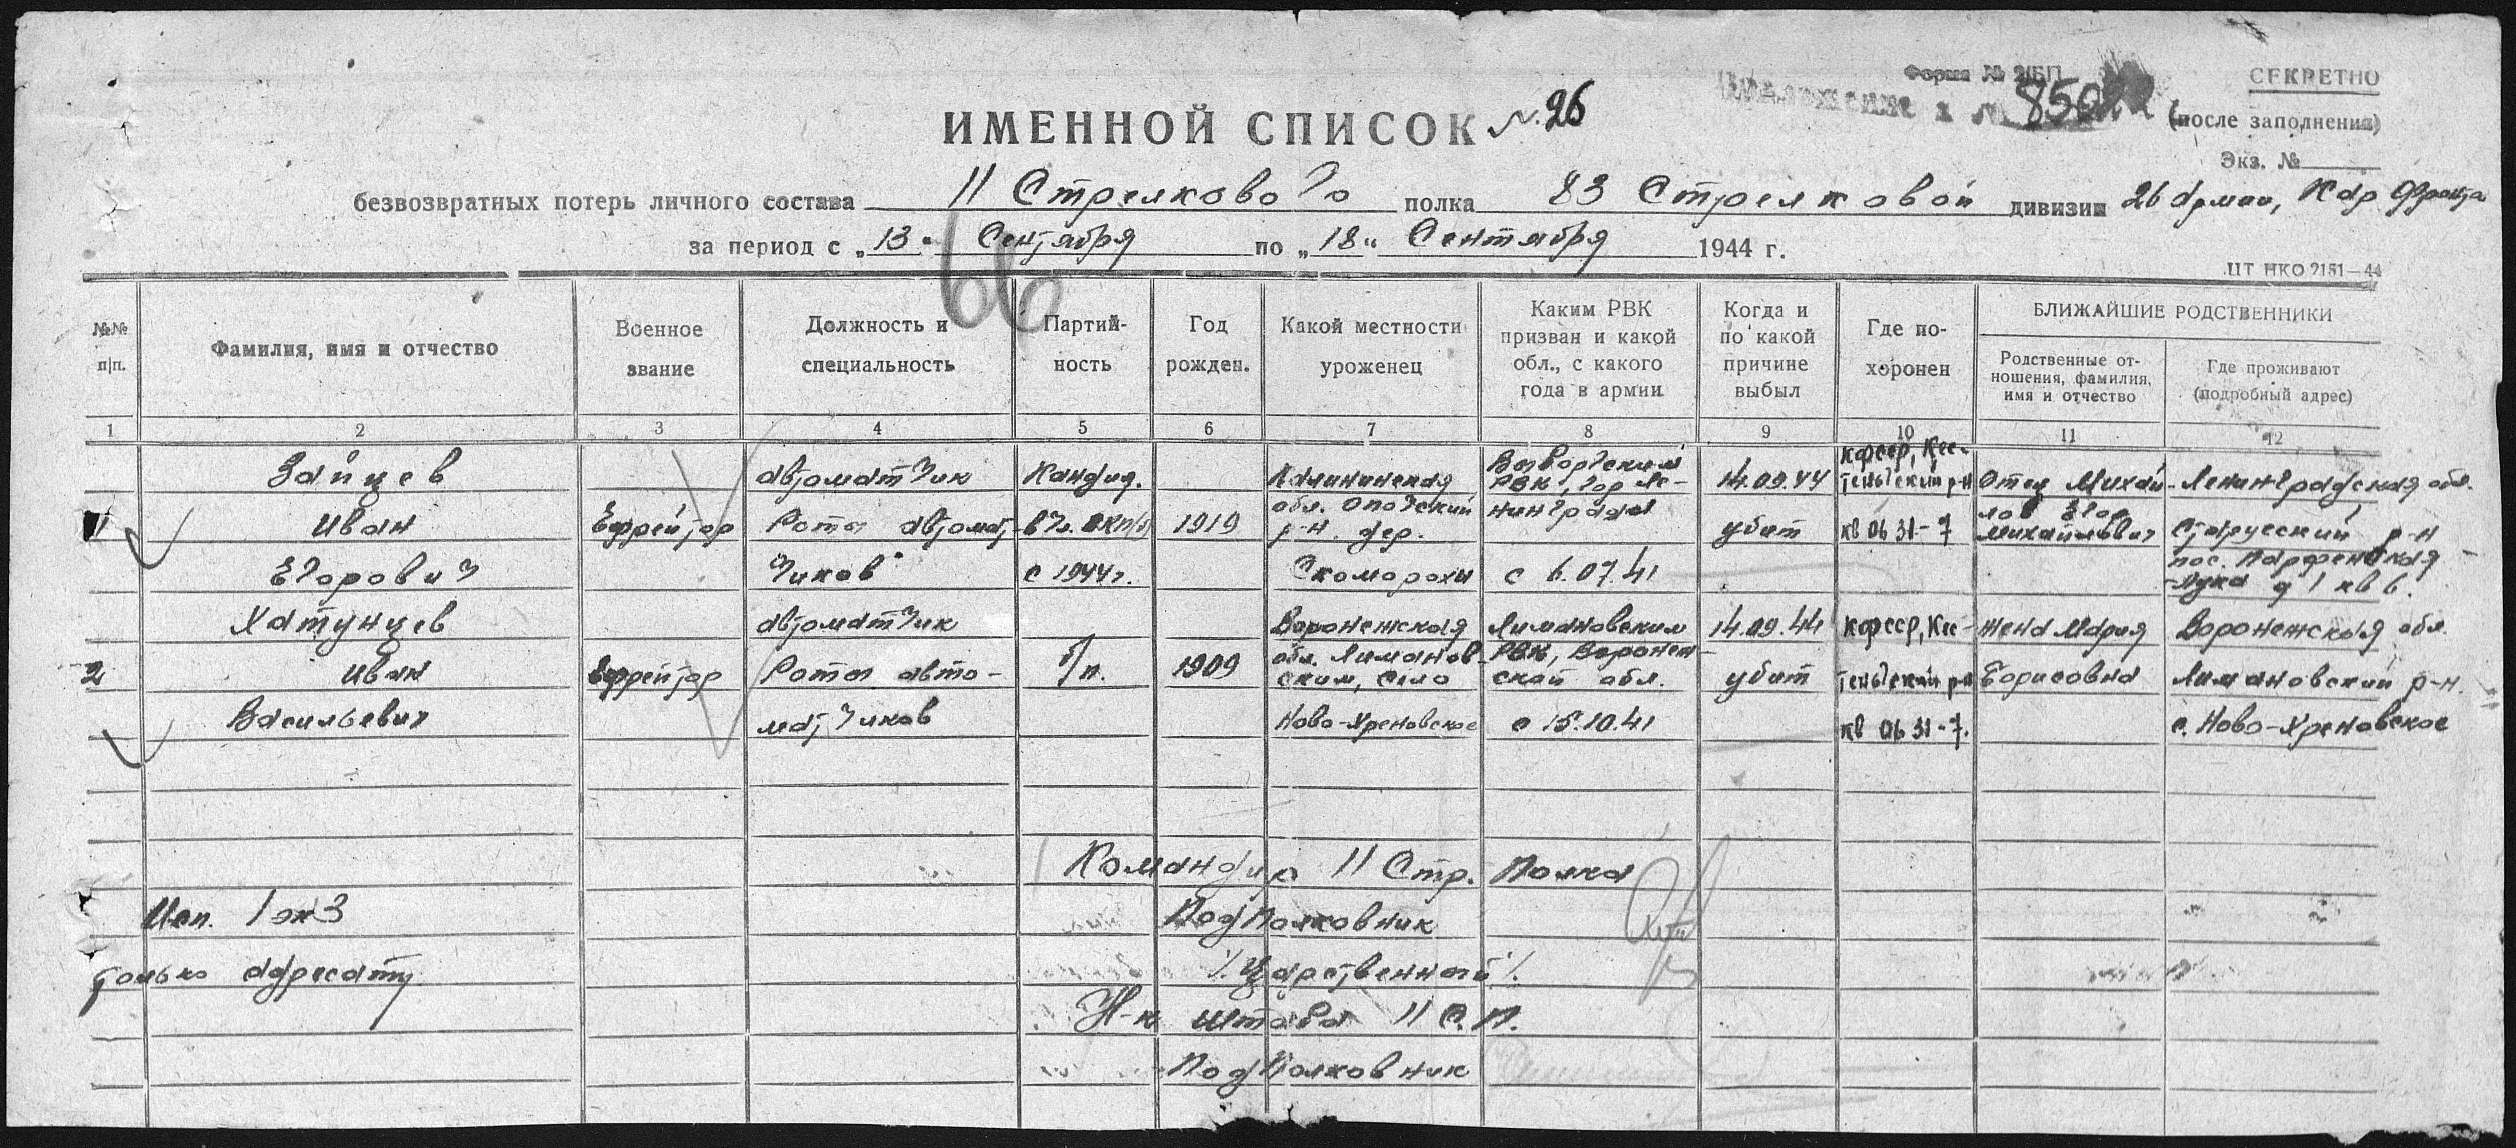 Форма № 2/БП
СЕКРЕТНО
ИМЕННОЙ СПИСОК № 26
(после заполнения)
Экз. №
безвозвратных потерь личного состава 11 Стрелкового полка 83 Стрелковой дивизии 26 Армии, Кар Фронта
за период с „13“ Сентября по „18“ Сентября 1944 г.
66
ЦТ НКО 2151—44
№№ п/п.
Фамилия, имя и отчество
Военное звание
Должность и специальность
Партийность
Год рожден.
Какой местности уроженец
Каким РВК призван и какой обл., с какого года в армии
Когда и по какой причине выбыл
Где похоронен
БЛИЖАЙШИЕ РОДСТВЕННИКИ
Родственные отношения, фамилия, имя и отчество
Где проживают (подробный адрес)
1 2 3 4 5 6 7 8 9 10 11 12
1
Зайцев
Иван
Егорович
Ефрейтор
автоматчик
Рота автомат-
чиков
Кандид.
вчл. ВКП/б/
с 1944г.
1919
Калининская
обл. Опочский
р-н. дер.
Скоморохи
Выборгским
РВК, гор Ле-
нинграда
с 6.07.41
14.09.44
убит
КФССР, Кес-
теньгский р-н
кв 06 31-7
Отец
Михайлович
Ленинградская обл.
Старусский р-н
пос. Парфенская
Лука д 1 кв 6.
2
Хатунцев
Иван
Васильевич
Ефрейтор
автоматчик
Рота авто-
матчиков
б/п.
1909
Воронежская
обл. Лиманов-
ским, село
Ново-Хреновское
Лимановским
РВК, Воронеж-
ской обл.
с 15.10.41
14.09.44
убит
КФССР, Кес-
теньгский р-н
кв 06 31-7.
жена Мария
Борисовна
Воронежская обл.
Лимановский р-н.
с. Ново-Хреновское
Командир 11 Стр. Полка
Исп. 1 экз
Подполковник
только адресату
/Царственный/.
Н-к штаба 11 С.П.
Подполковник